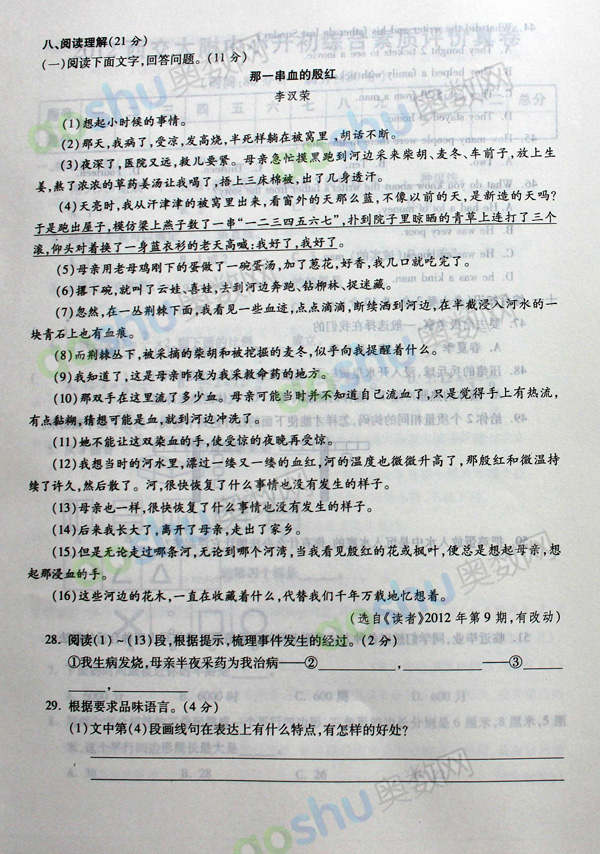 八、阅读理解(21分)
(一)阅读下面文字,回答问题。(11分)
那一串血的殷红
李汉荣
(1)想起小时候的事情。
(2)那天,我病了,受凉,发高烧,半死样躺在被窝里,胡话不断。
(3)夜深了,医院又远,救儿要紧。母亲急忙摸黑跑到河边采来柴胡、麦冬、车前子,放上生
姜,熬了浓浓的草药姜汤让我喝了,捂上三床棉被,出了几身透汗。
(4)天亮时,我从汗津津的被窝里出来,看窗外的天那么蓝,不像以前的天,是新造的天吗?
于是跑出屋子,模仿梁上燕子数了一串“一二三四五六七”,扑到院子里晾晒的青草上连打了三个
滚,仰头对着换了一身蓝衣衫的老天高喊:我好了,我好了。
(5)母亲用老母鸡刚下的蛋做了一碗蛋汤,加了葱花,好香,我几口就吃完了。
(6)撂下碗,就叫了云娃、喜娃,去到河边奔跑、钻柳林、捉迷藏。
(7)忽然,在一丛荆棘下面,我看见一些血迹,点点滴滴,断续洒到河边,在半截浸入河水的一
块青石上也有血痕。
(8)而荆棘丛下,被采摘的柴胡和被挖掘的麦冬,似乎向我提醒着什么。
(9)我知道了,这是母亲昨夜为我采救命药的地方。
(10)那双手在这里流了多少血。母亲可能当时并不知道自己流血了,只是觉得手上有热流,
有点黏糊,猜想可能是血,就到河边冲洗了。
(11)她不能让这双染血的手,使受惊的夜晚再受惊。
(12)我想当时的河水里,漂过一缕又一缕的血红,河的温度也微微升高了,那殷红和微温持
续了许久,然后散了。河,很快恢复了什么事情也没有发生的样子。
(13)母亲也一样,很快恢复了什么事情也没有发生的样子。
(14)后来我长大了,离开了母亲,走出了家乡。
(15)但是无论走过哪条河,无论到哪个河湾,当我看见殷红的花或枫叶,便总是想起母亲,想
起那浸血的手。
(16)这些河边的花木,一直在收藏着什么,代替我们千年万载地忆想着。
(选自《读者》2012年第9期,有改动)
28. 阅读(1)~(13)段,根据提示,梳理事件发生的经过。(2分)
①我生病发烧,母亲半夜采药为我治病——②__________,__________——③____
29. 根据要求品味语言。(4分)
(1)文中第(4)段画线句在表达上有什么特点,有怎样的好处?
aoshu奥数网
aoshu奥数网
aoshu奥数网
aoshu奥数网